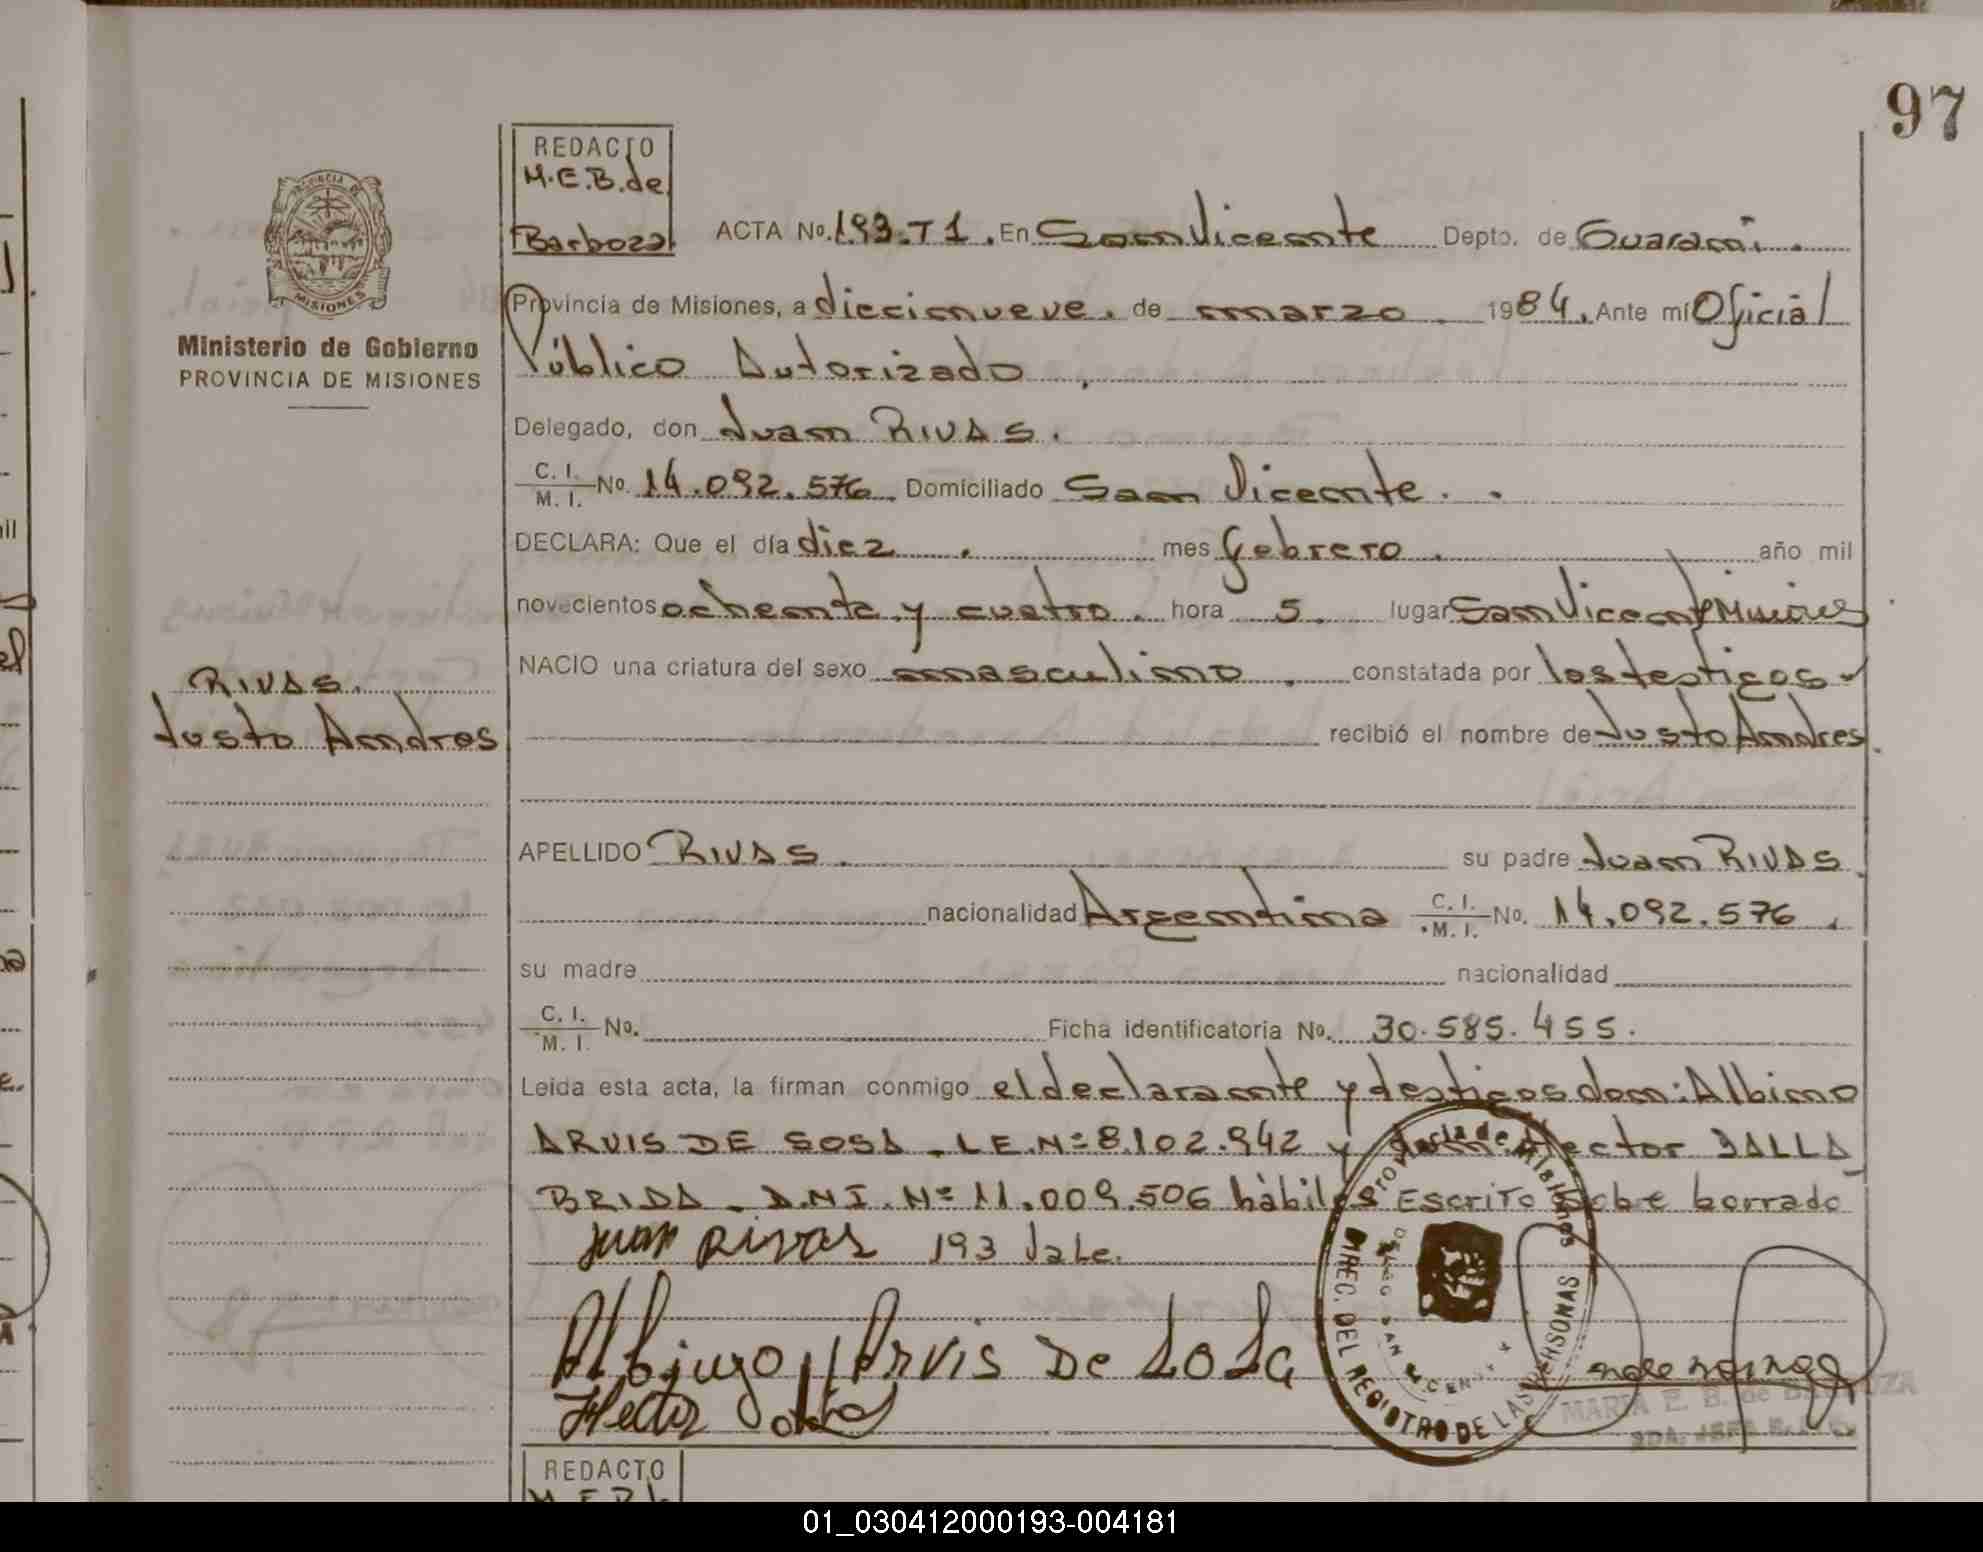 97
REDACTO
M.E.B. de
Barboza.
ACTA No. 193.T1. En San Vicente Depto. de Guarani.
PROVINCIA DE
MISIONES
Ministerio de Gobierno
PROVINCIA DE MISIONES
Provincia de Misiones, a diecinueve. de marzo. 1984. Ante mí Oficial
Público Autorizado.
Delegado, don Juan RIVAS.
C. I.
M. I. No. 14.092.576. Domiciliado San Vicente.
DECLARA: Que el día diez. mes febrero. año mil
novecientos ochenta y cuatro. hora 5. lugar San Vicente Misiones
NACIO una criatura del sexo masculino. constatada por los testigos
recibió el nombre de Justo Andres.
RIVAS.
Justo Andres
APELLIDO RIVAS. su padre Juan RIVAS.
nacionalidad Argentina C. I.
M. I. No. 14.092.576.
su madre nacionalidad
C. I.
M. I. No. Ficha identificatoria No. 30.585.455.
Leida esta acta, la firman conmigo el declarante y testigos don: Albino
ARVIS DE SOSA. L.E. Nº 8.102.942 y don: Hector DALLA
BRIDA. D.N.I. Nº 11.009.506 hábiles Escrito sobre borrado
Juan Rivas 193 Vale.
Arvis De SoSa
Hector
Provincia de Misiones
DIREC. DEL REGISTRO DE LAS PERSONAS
SAN VICENTE
MARIA E. B. de BARBOZA
REDACTO
01_030412000193-004181